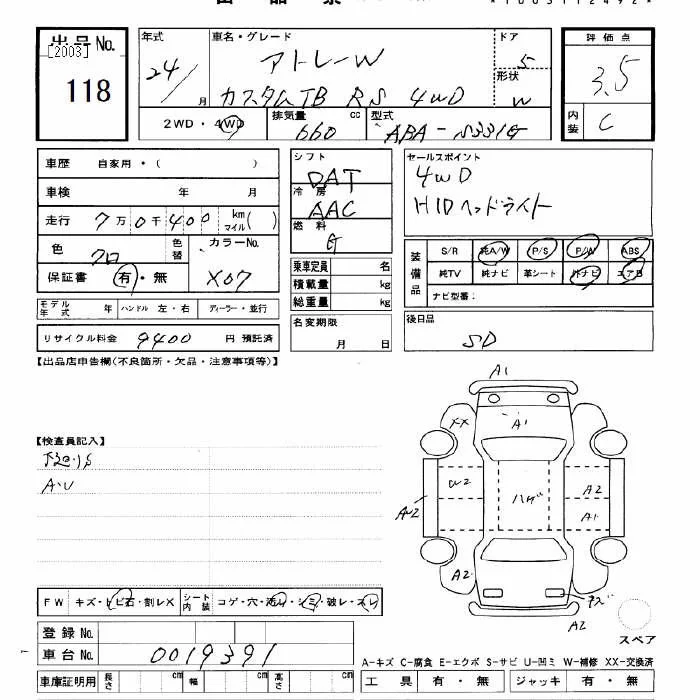 *1003112492*
出品No.
[2003]
118
年式
24/
月
車名・グレード
アトレーW
カスタムTB RS 4WD
ドア
5
形状
W
2WD・4WD
排気量
660
cc
型式
ABA-S331G
評価点
3.5
内装
C
車歴 自家用・( )
車検 年 月
走行 7万0千400 km マイル( )
色
クロ
色替
カラーNo.
X07
保証書 有・無
モデル年式 年 ハンドル 左・右 ディーラー・並行
リサイクル料金 9400 円 預託済
シフト
DAT
冷房
AAC
燃料
G
乗車定員 名
積載量 kg
総重量 kg
名変期限
月 日
セールスポイント
4WD
HIDヘッドライト
装備品
S/R 純A/W P/S P/W ABS
純TV 純ナビ 革シート 外ナビ エアB
ナビ型番:
後日品
SD
【出品店申告欄(不良箇所・欠品・注意事項等)】
【検査員記入】
A・U
A1
XX
A1
W2
ハゲ
A2
A2
A1
A2
A2
スペア
FW キズ・トビ石・割レX シート内装 コゲ・穴・汚レ・シミ・破レ・スレ
登録No.
車台No. 0019391
車庫証明用 長さ cm 幅 cm 高さ cm
A-キズ C-腐食 E-エクボ S-サビ U-凹ミ W-補修 XX-交換済
工具 有・無 ジャッキ 有・無